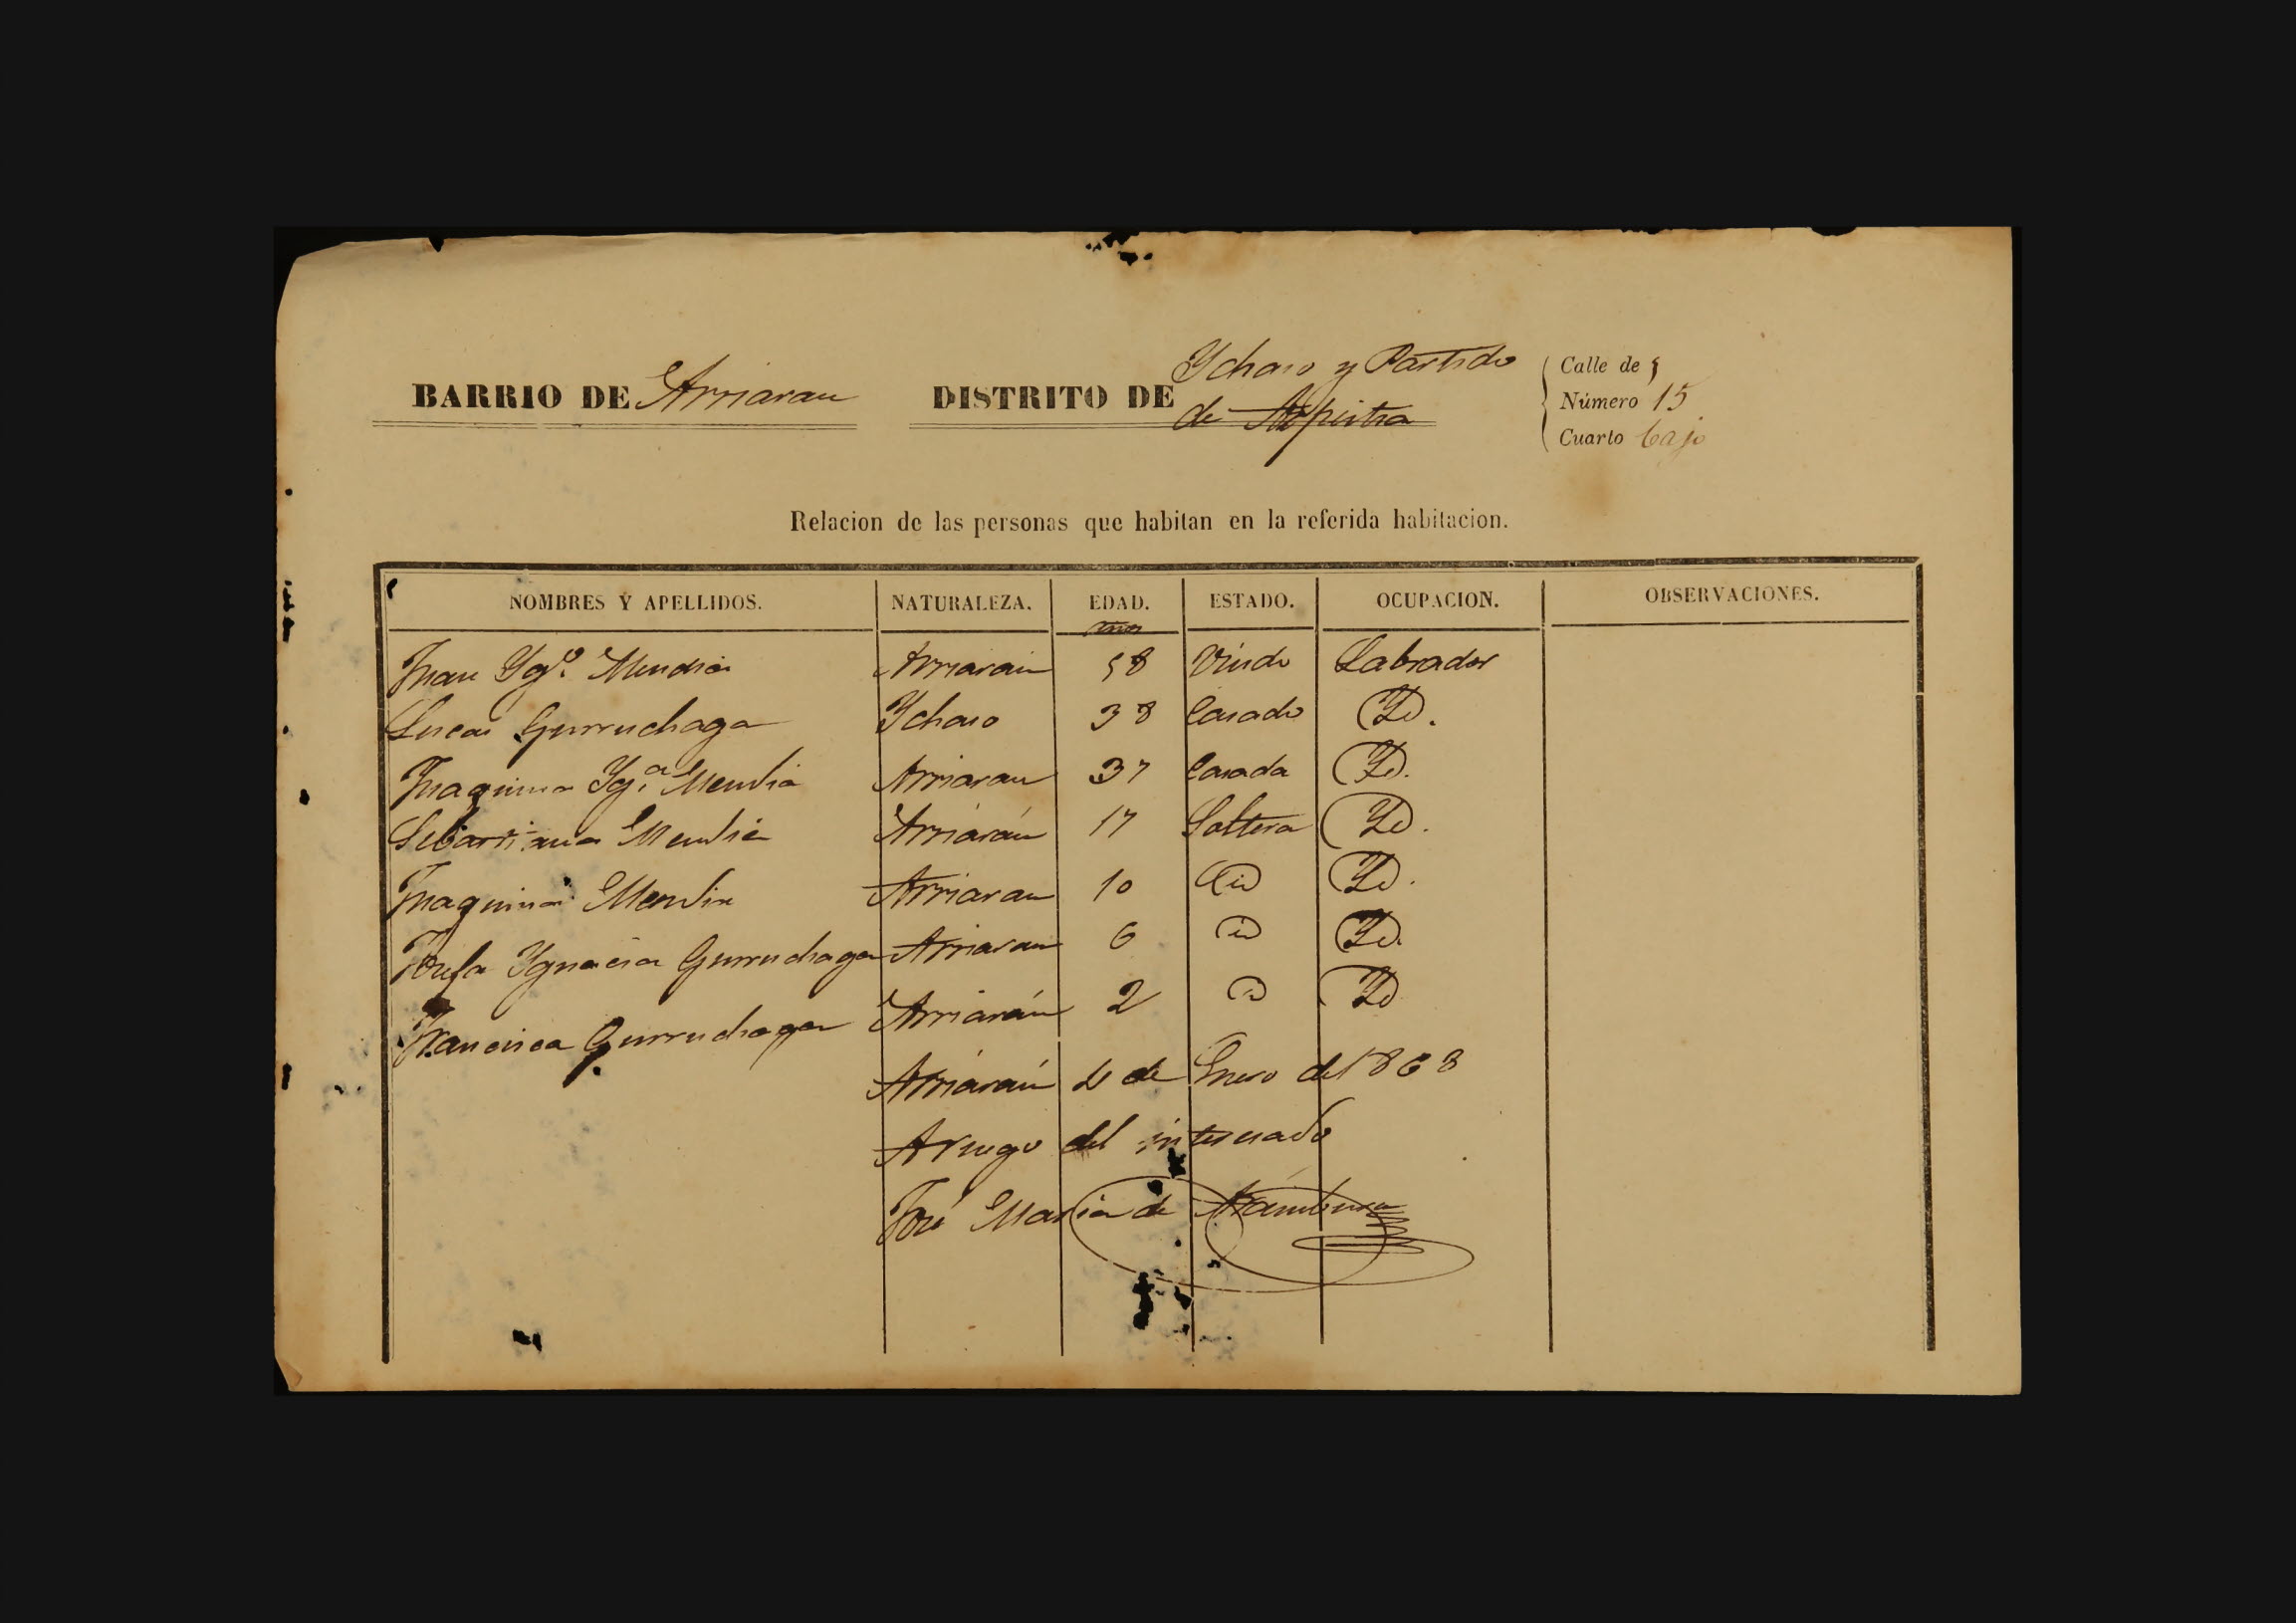 BARRIO DE Arriaran DISTRITO DE Ychaso y Partido de Azpeitia
Calle de
Número 15
Cuarto bajo
Relacion de las personas que habitan en la referida habitacion.
NOMBRES Y APELLIDOS. NATURALEZA. EDAD. ESTADO. OCUPACION. OBSERVACIONES.
años
Juan Ygº. Mendia Arriarán 58 Viudo Labrador
Lucas Gurruchaga Ychaso 38 Casado Yd.
Juaquina Yg.ª Mendia Arriaran 37 Casada Yd.
Sebastiana Mendia Arriarán 17 Soltera Yd.
Juaquina Mendia Arriaran 10 id Yd.
Josefa Ygnacia Gurruchaga Arriaran 6 id Yd.
Francisca Gurruchaga Arriarán 2 id Yd
Arriarán 4 de Enero de 1868
A ruego del interesado
José Maria de Aramburu